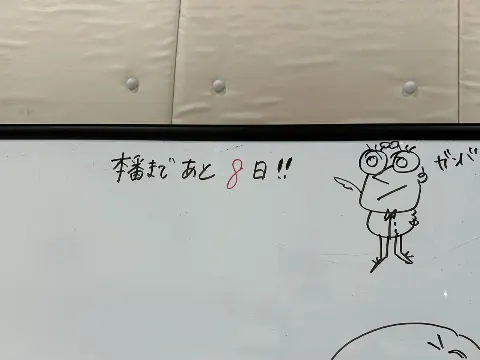 本番まであと8日!!
ガバ